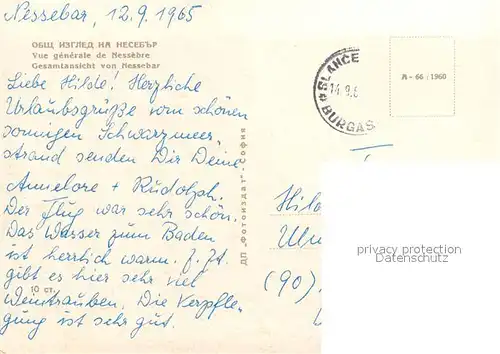 Nessebar, 12.9.1965
ОБЩ ИЗГЛЕД НА НЕСЕБЪР
Vue générale de Nessèbre
Gesamtansicht von Nessebar
Liebe Hilde! Herzliche
Urlaubsgrüße vom schönen
sonnigen Schwarzmeer
strand senden Dir Deine
Annelore + Rudolph.
Der Flug war sehr schön.
Das Wasser zum Baden
ist herrlich warm. Z. Zt.
gibt es hier sehr viel
Weintrauben. Die Verpfle-
gung ist sehr gut.
10 ст.
ДП „Фотоиздат"-София
SLANCE
14.9.6
BURGAS
А-66/1960
Hil
Ulm
(90)
privacy protection
Datenschutz